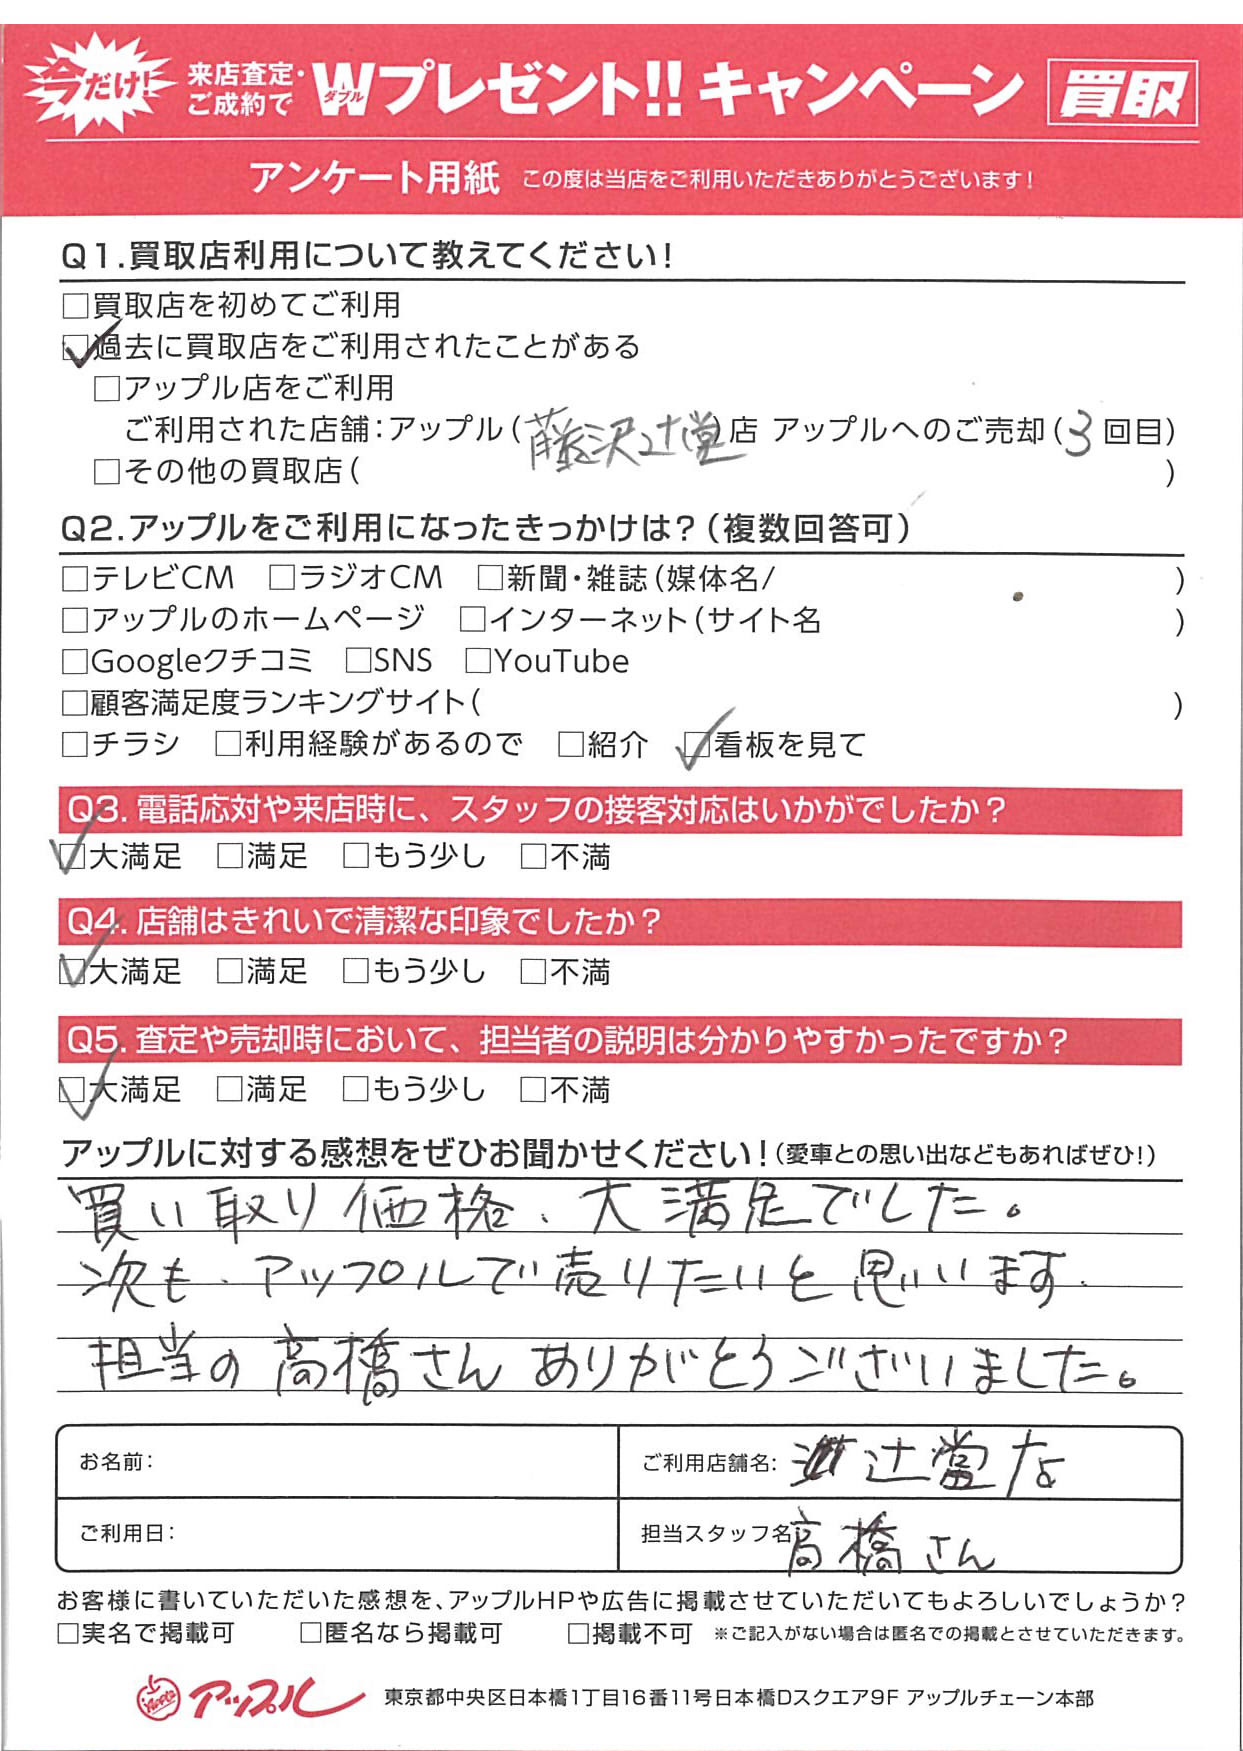 今だけ!
来店査定・
ご成約で
Wプレゼント!! キャンペーン 買取
ダブル
アンケート用紙 この度は当店をご利用いただきありがとうございます!
Q1.買取店利用について教えてください!
□買取店を初めてご利用
☑過去に買取店をご利用されたことがある
□アップル店をご利用
ご利用された店舗:アップル(藤沢辻堂)店 アップルへのご売却(3回目)
□その他の買取店( )
Q2.アップルをご利用になったきっかけは?(複数回答可)
□テレビCM □ラジオCM □新聞・雑誌(媒体名/ )
□アップルのホームページ □インターネット(サイト名 )
□Googleクチコミ □SNS □YouTube
□顧客満足度ランキングサイト( )
□チラシ □利用経験があるので □紹介 ☑看板を見て
Q3. 電話応対や来店時に、スタッフの接客対応はいかがでしたか?
☑大満足 □満足 □もう少し □不満
Q4. 店舗はきれいで清潔な印象でしたか?
☑大満足 □満足 □もう少し □不満
Q5. 査定や売却時において、担当者の説明は分かりやすかったですか?
☑大満足 □満足 □もう少し □不満
アップルに対する感想をぜひお聞かせください!(愛車との思い出などもあればぜひ!)
買い取り価格、大満足でした。
次も、アップルで売りたいと思います.
担当の高橋さんありがとうございました。
お名前: ご利用店舗名: 辻堂店
ご利用日: 担当スタッフ名 高橋さん
お客様に書いていただいた感想を、アップルHPや広告に掲載させていただいてもよろしいでしょうか?
□実名で掲載可 □匿名なら掲載可 □掲載不可 ※ご記入がない場合は匿名での掲載とさせていただきます。
Apple アップル 東京都中央区日本橋1丁目16番11号日本橋Dスクエア9F アップルチェーン本部